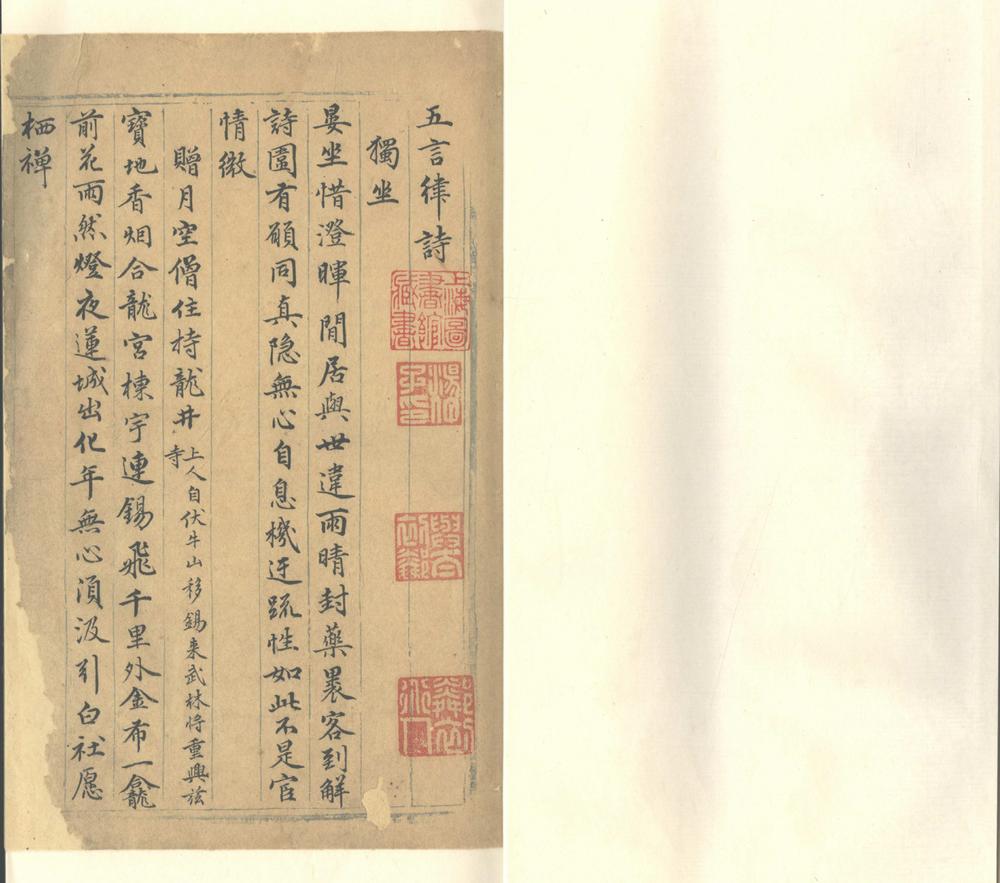 五言律詩
獨坐
晏坐惜澄暉間居與世違雨晴封藥裹客到解
詩圍有願同真隐無心自息機迂疏性如此不是宦
情微
贈月空僧住持龍井上人自伏牛山移錫来武林将重興玆寺
寳地香烟合龍宮棟宇連錫飛千里外金布一龕
前花雨然燈夜蓮城出化年無心湏汲引白社愿
栖禅
上海圖書館藏書